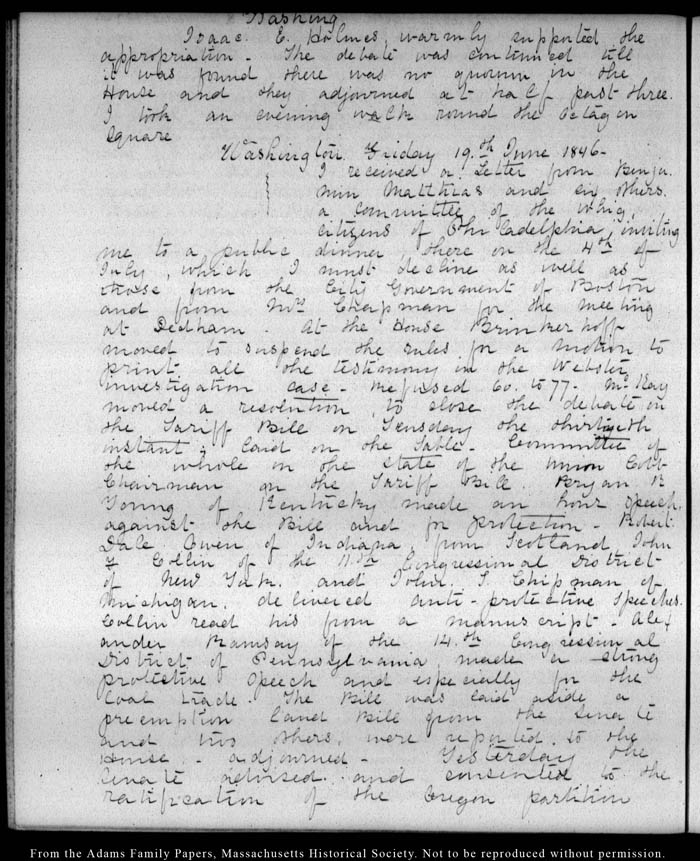 Washing
Isaac. E. Holmes, warmly supported the
appropriation - The debate was continued till
it was found there was no quorum in the
House and they adjourned at half past three.
I took an evening walk round the Octagon
Square
Washington. Friday 19.th June 1846-
I received a Letter from Benja-
min Matthias and six others.
a committee of the Whig,
citizens of Philadelphia, inviting
me to a public dinner, there on the 4th of
July, which I must decline as well as
those from the City Government of Boston
and from Mr Chapman for the meeting
at Dedham. At the House Brinkerhoff
moved to suspend the rules for a motion to
print all the testimony in the Webster
investigation case - refused 60. to 77. McKay
moved a resolution, to close the debate on
the Tariff Bill on Tuesday the thirtieth
instant - laid on the table - Committee of
the whole on the state of the Union Cobb
Chairman on the Tariff Bill. Bryan R
Young of Kentucky made an hour speech,
against the Bill and for protection - Robert
Dale Owen of Indiana, from Scotland, John
F Collin of the Congressional District
of New York. and John. S. Chipman of
Michigan, delivered anti-protective speeches.
Collin read his from a manuscript - Alex
ander Ramsay of the 14.th Congressional
District of Pennsylvania, made a strong
protective speech and especially for the
Coal trade. The Bill was laid aside a
preemption land Bill from the Senate
and two others, were reported to the
House - adjourned - Yesterday the
Senate advised and consented to the
ratification of the Oregon partition
From the Adams Family Papers, Massachusetts Historical Society. Not to be reproduced without permission.